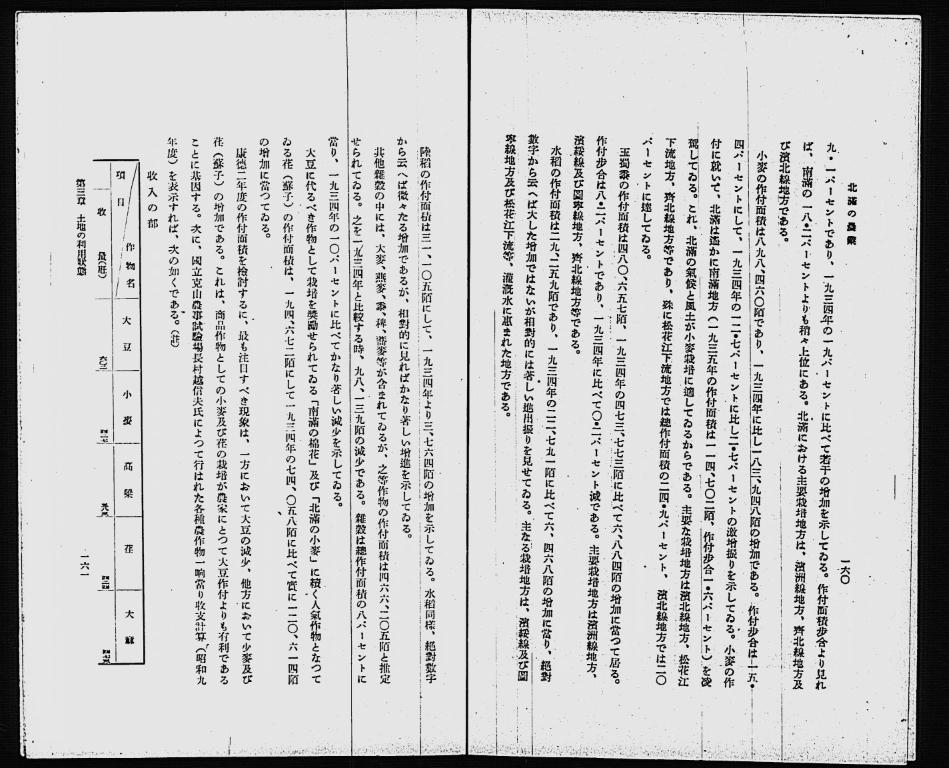 北滿の農業
一六〇
九・一パーセントであり、一九三四年の一九パーセントに比べて若干の增加を示してゐる。作付面積步合より見れ
ば、南滿の一八・二パーセントよりも稍々上位にある。北滿における主要栽培地方は、濱洲線地方、齊北線地方及
び濱北線地方である。
小麥の作付面積は八九八、四六〇陌であり、一九三四年に比し一八三、九四八陌の增加である。作付步合は一五・
四パーセントにして、一九三四年の一二・七パーセントに比し二・七パーセントの激增振りを示してゐる。小麥の作
付に就いて、北滿は遙かに南滿地方（一九三五年の作付面積は一一四、七〇二陌、作付步合一・六パーセント）を凌
駕してゐる。これ、北滿の氣候と風土が小麥栽培に適してゐるからである。主要な栽培地方は濱北線地方、松花江
下流地方、齊北線地方等であり、殊に松花江下流地方では總作付面積の二四・九パーセント、濱北線地方では二〇
パーセントに達してゐる。
玉蜀黍の作付面積は四八〇、六五七陌、一九三四年の四七三、七七三陌に比べて六、八八四陌の增加に當つて居る。
作付步合は八・二パーセントであり、一九三四年に比べて〇・二パーセント減である。主要栽培地方は濱洲線地方、
濱綏線及び圖寧線地方、齊北線地方等である。
水稻の作付面積は二九、二五九陌であり、一九三四年の二二、七九一陌に比べて六、四六八陌の增加に當り、絕對
數字から云へば大した增加ではないが相對的には著しい進出振りを見せてゐる。主なる栽培地方は、濱綏線及び圖
寧線地方及び松花江下流等、灌漑水に惠まれた地方である。
陸稻の作付面積は三一、一〇五陌にして、一九三四年より三、七六四陌の增加を示してゐる。水稻同樣、絕對數字
から云へば微々たる增加であるが、相對的に見ればかなり著しい增進を示してゐる。
其他雜穀の中には、大麥、燕麥、黍、稗、蕎麥等が含まれてゐるが、之等作物の作付面積は四六六、二〇五陌と推定
せられてゐる。之を一九三四年と比較する時、九八、一三九陌の減少である。雜穀は總作付面積の八パーセントに
當り、一九三四年の一〇パーセントに比べてかなり著しい減少を示してゐる。
大豆に代るべき作物として栽培を奬勵せられてゐる「南滿の棉花」及び「北滿の小麥」に續く人氣作物となつて
ゐる荏（蘇子）の作付面積は、一九四、六七二陌にして一九三四年の七四、〇五八陌に比べて實に一二〇、六一四陌
の增加に當つてゐる。
康德二年度の作付面積を檢討するに、最も注目すべき現象は、一方において大豆の減少、他方において小麥及び
荏（蘇子）の增加である。これは、商品作物としての小麥及び荏の栽培が農家にとつて大豆作付よりも有利である
ことに基因する。次に、國立克山農事試驗場長村越信夫氏によつて行はれた各種農作物一晌當り收支計算（昭和九
年度）を表示すれば、次の如くである。（註）
收入の部
項目 作物名 大豆 小麥 高粱 荏 大麻
收 量(瓩)
第三章 土地の利用狀態
一六一